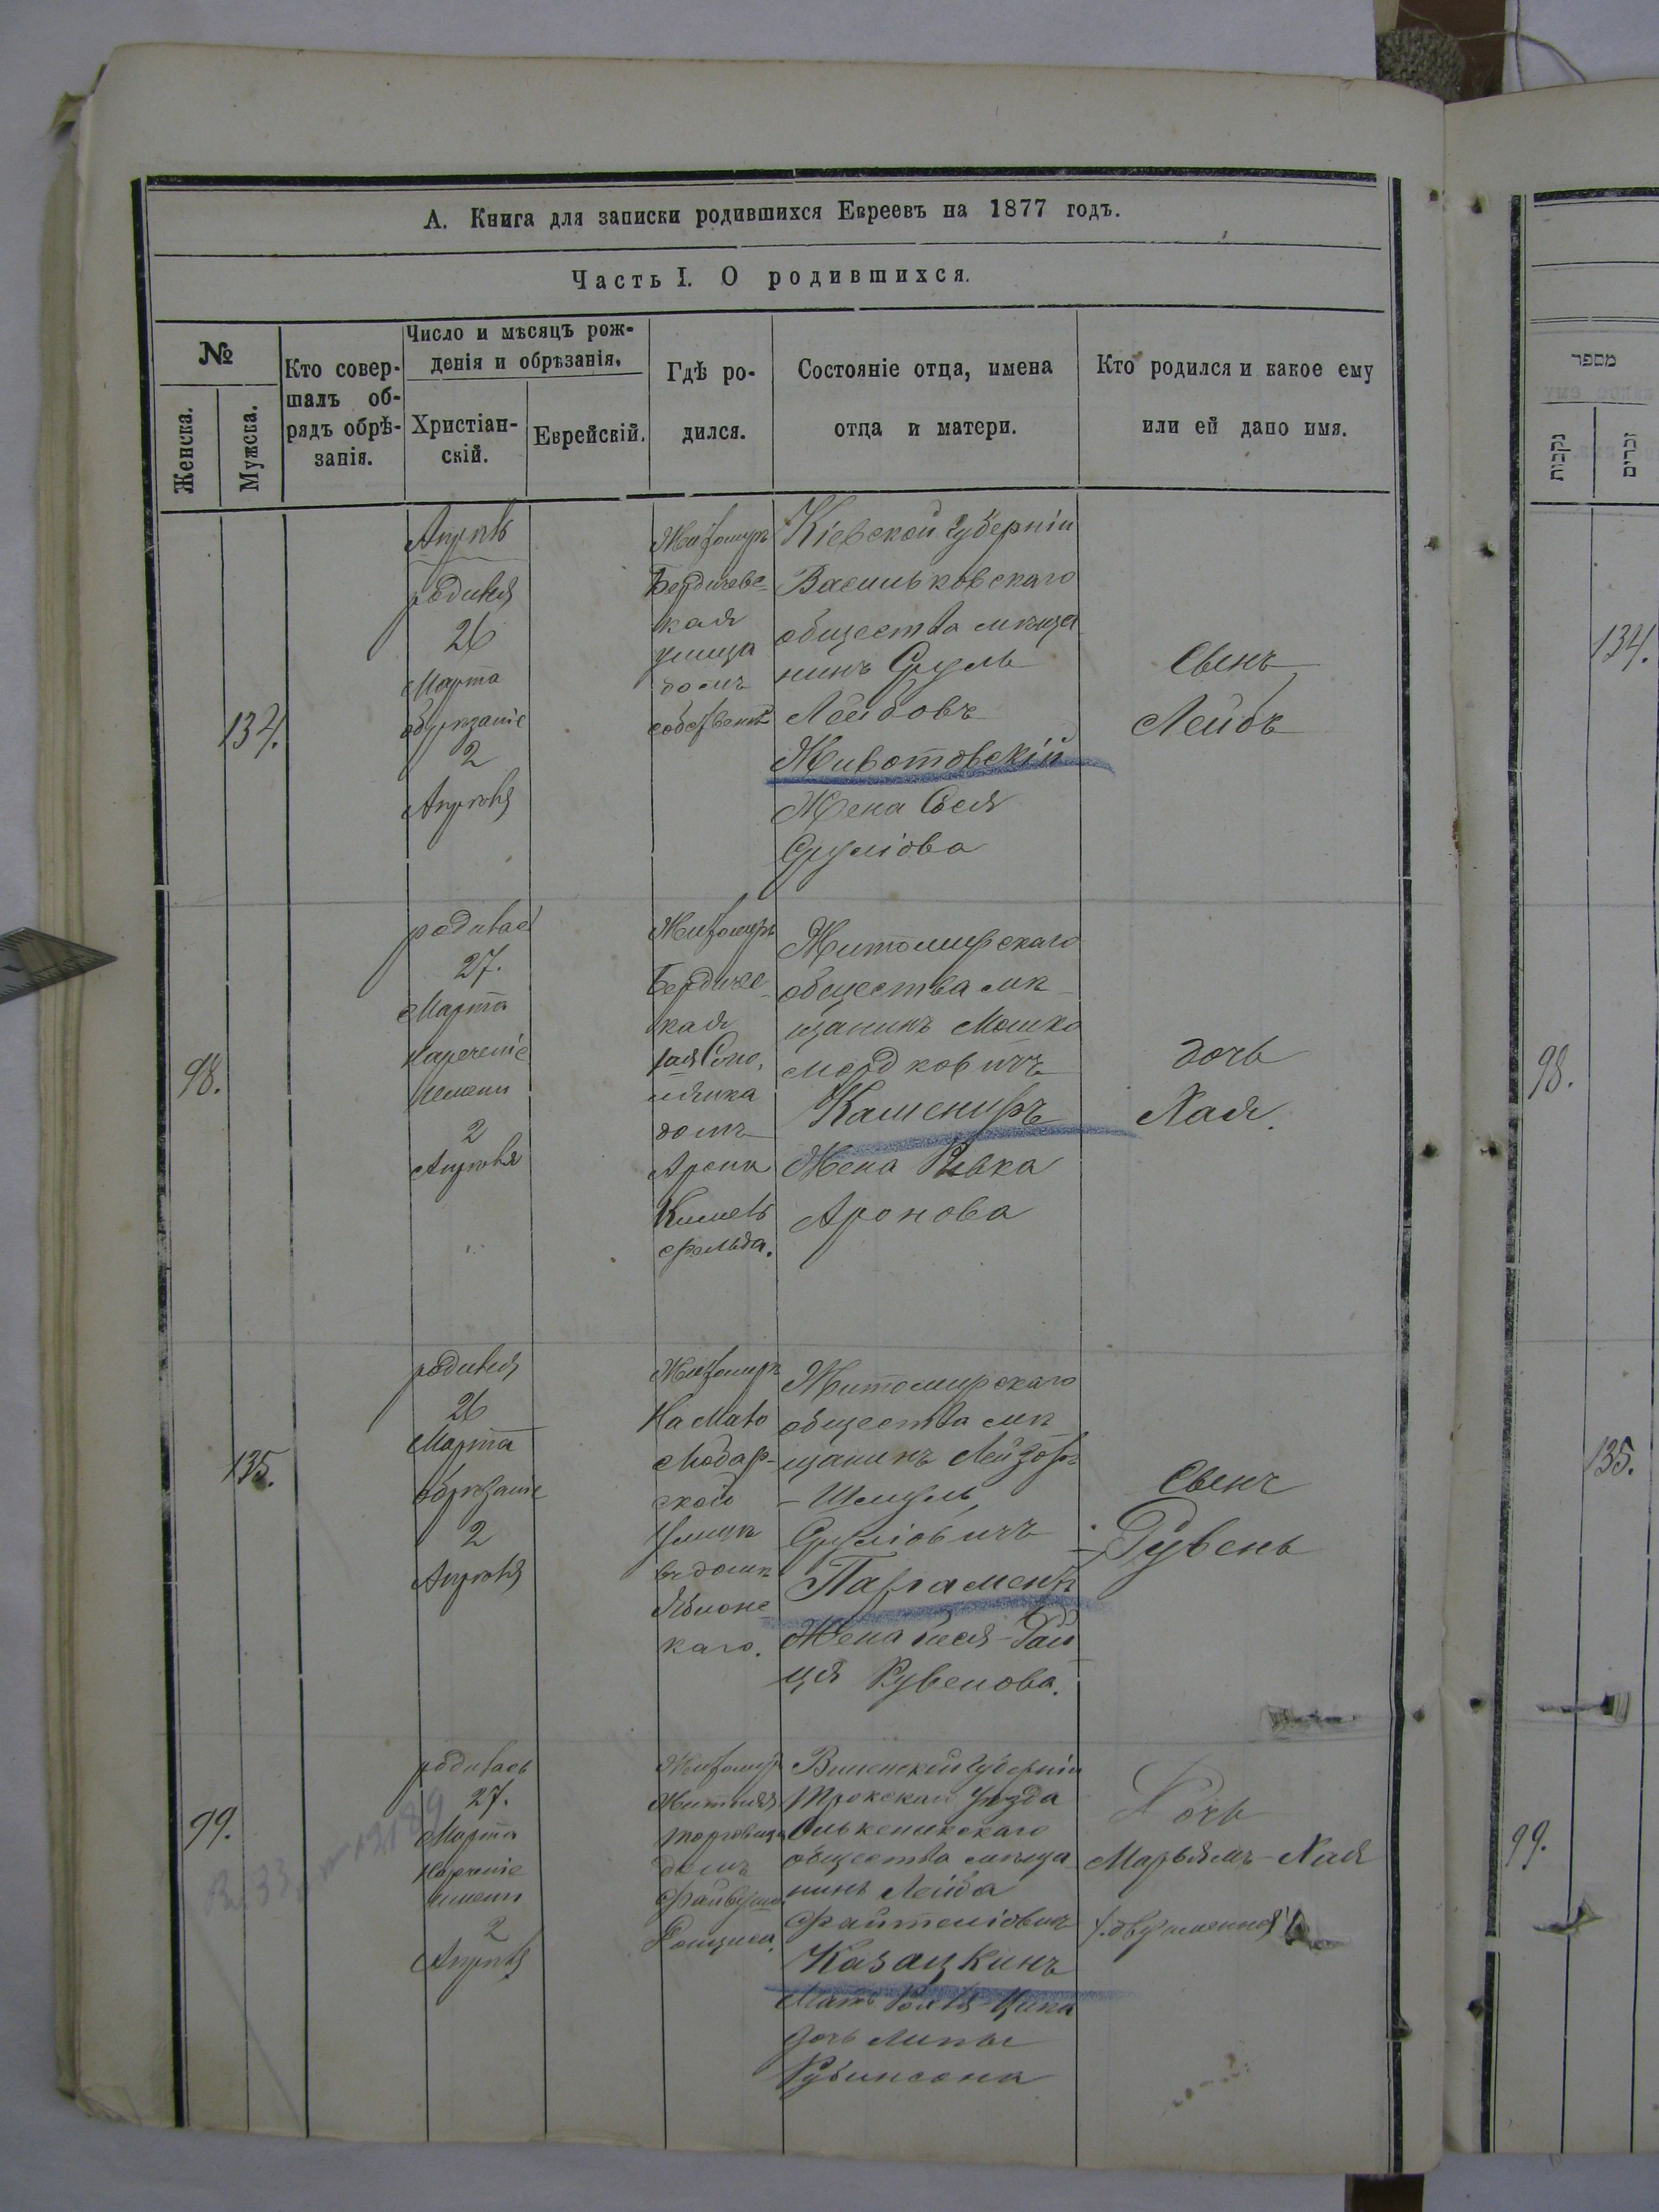 А. Книга для записки родившихся Евреевъ на 1877 годъ.
Часть I. О родившихся.
№
Женска.
Мужска.
Кто совер-
шалъ об-
рядъ обрѣ-
занія.
Число и мѣсяцъ рож-
денія и обрѣзанія.
Христіан-
скій.
Еврейскій.
Гдѣ ро-
дился.
Состояніе отца, имена
отца и матери.
Кто родился и какое ему
или ей дано имя.
134.
Апрѣль
родился
26
Марта
обрѣзаніе
2
Апрѣля
Житомиръ
Бердичевс-
кая
улица
домъ
собственный
Кіевской губерніи
Васильковскаго
общества мѣща
нинъ Сруль
Лейбовъ
Животовскій
Жена Бася
Сруліова
Сынъ
Лейбъ
98.
родилась
27.
Марта
нареченіе
имени
2
Апрѣля
Житомиръ
Бердиче-
кая
домъ
Арона
Кимель
фельда.
Житомирскаго
общества мѣ-
щанинъ Мошко
Мордковичъ
Камениръ
Жена Ривка
Аронова
дочь
Хая.
135.
родился
26
Марта
обрѣзаніе
2
Апрѣля
Житомиръ
На Мало
Чюдар-
ской
улицѣ
въ домѣ
Яблонс-
каго.
Житомирскаго
общества мѣ
щанинъ Лейзоръ
- Шмуль
Сруліовичъ
Парламентъ
Жена Бася-Рай
ця Рувенова.
Сынъ
Рувенъ
99.
родилась
27.
Марта
нареченіе
имени
2
Апрѣля
Житомиръ
Житняя
торговица
домъ
Файвиша
Виленской губерніи
Трокскаго уѣзда
Олькеникскаго
общества мѣща
нинъ Лейба
Файтеліовичъ
Казацкинъ
Мать Ципа
дочь Липы
Рубинсона
Дочь
Марьямъ-Хая
(.двуименная.)
מספר
נקבות
זכרים
134.
98.
135.
99.